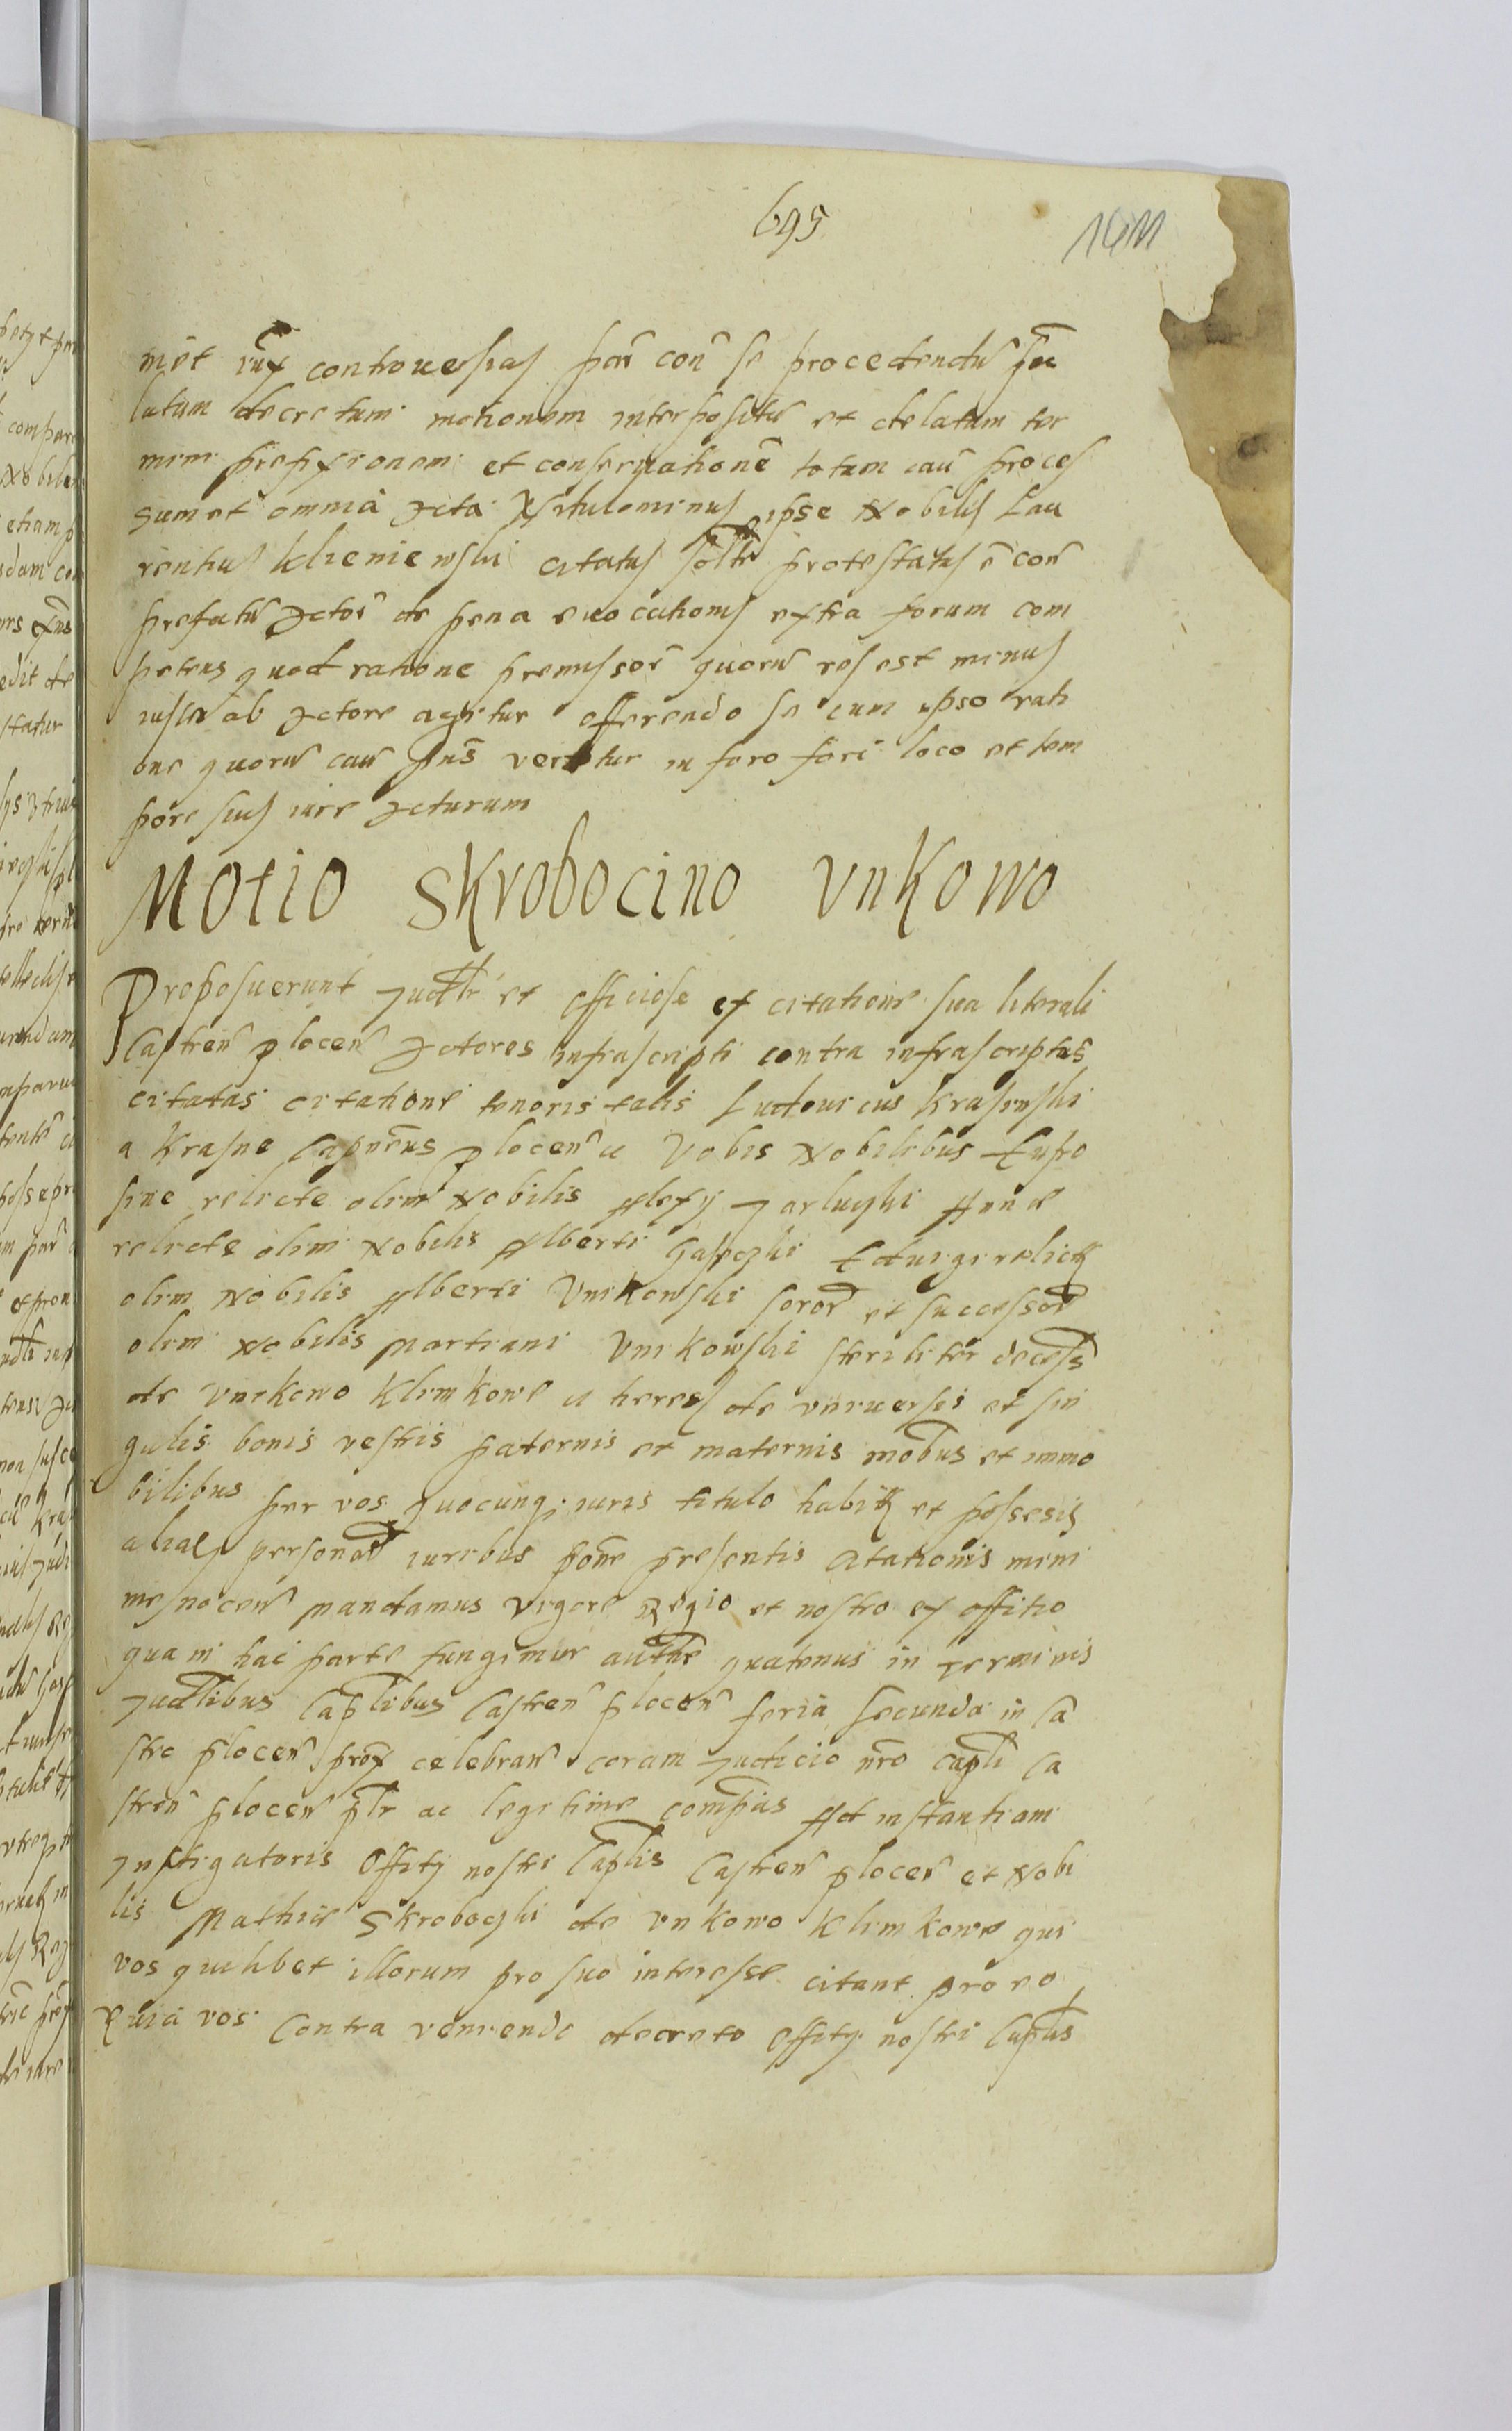 695
met controuersias par con se procedendu
latum decretum motionem interpositu et delatum ter
mini prefixionem et conseruationē totum cau proces
sumet omnia Acta Nihilominus ipse Nobilis Lau
rentius Klieniewski citatus protestatus ē con
prefatu Actor de pena euocationis extra forum com
petens quod ratione premissor quoru res est minus
iuste ab Actore agitur offerendo se cum ipso rati
one quoru cau pns vertitur in foro fori loco et tem
pore suis iure Acturum
Motio Skrobocino Vnkowo
Proposuerunt Judlr et officiose ex citatione sua literali
Castren plocen Actores infrascripti contra infrascriptas
citatas citatione tenoris talis Ludouicus Krasinski
a Krasne Capneus plocen a Vobis Nobilibus Eufro
sine relicte olim Nobilis Alexy Annæ
relicte olim Nobilis Alberti Eduigi relict
olim Nobilis Alberti Vnikowski soror et successor
olim Nobilis Martiani Vnikowski steriliter decess
de Vnikowo Klimkowe a heres de vniuersis et sin
gulis bonis vestris paternis et maternis mobus et immo
bilibus per vos quocunq; iuris titulo habit et possesis
alias personar iuribus pone presentis Citationis mini
me nocen Mandamus vigore Regio et nostro ex offitio
qua in hac parte fungimur authe quatenus in Terminis
Judlibus Caplibus Castren plocen feria secunda in Ca
stro plocen prox celebran coram Judicio nro capli Ca
stren plocen plr ac legitime compeas Ad instantiam
Instigatoris Offity nostri Caplis Castren plocen et Nobi
lis Mathiæ Skroboczki de Vnkowo Klimkowe qui
vos quilibet illorum pro suo interesse citant pro eo
Quia vos Contra veniendo decreto offity nostri Caplis